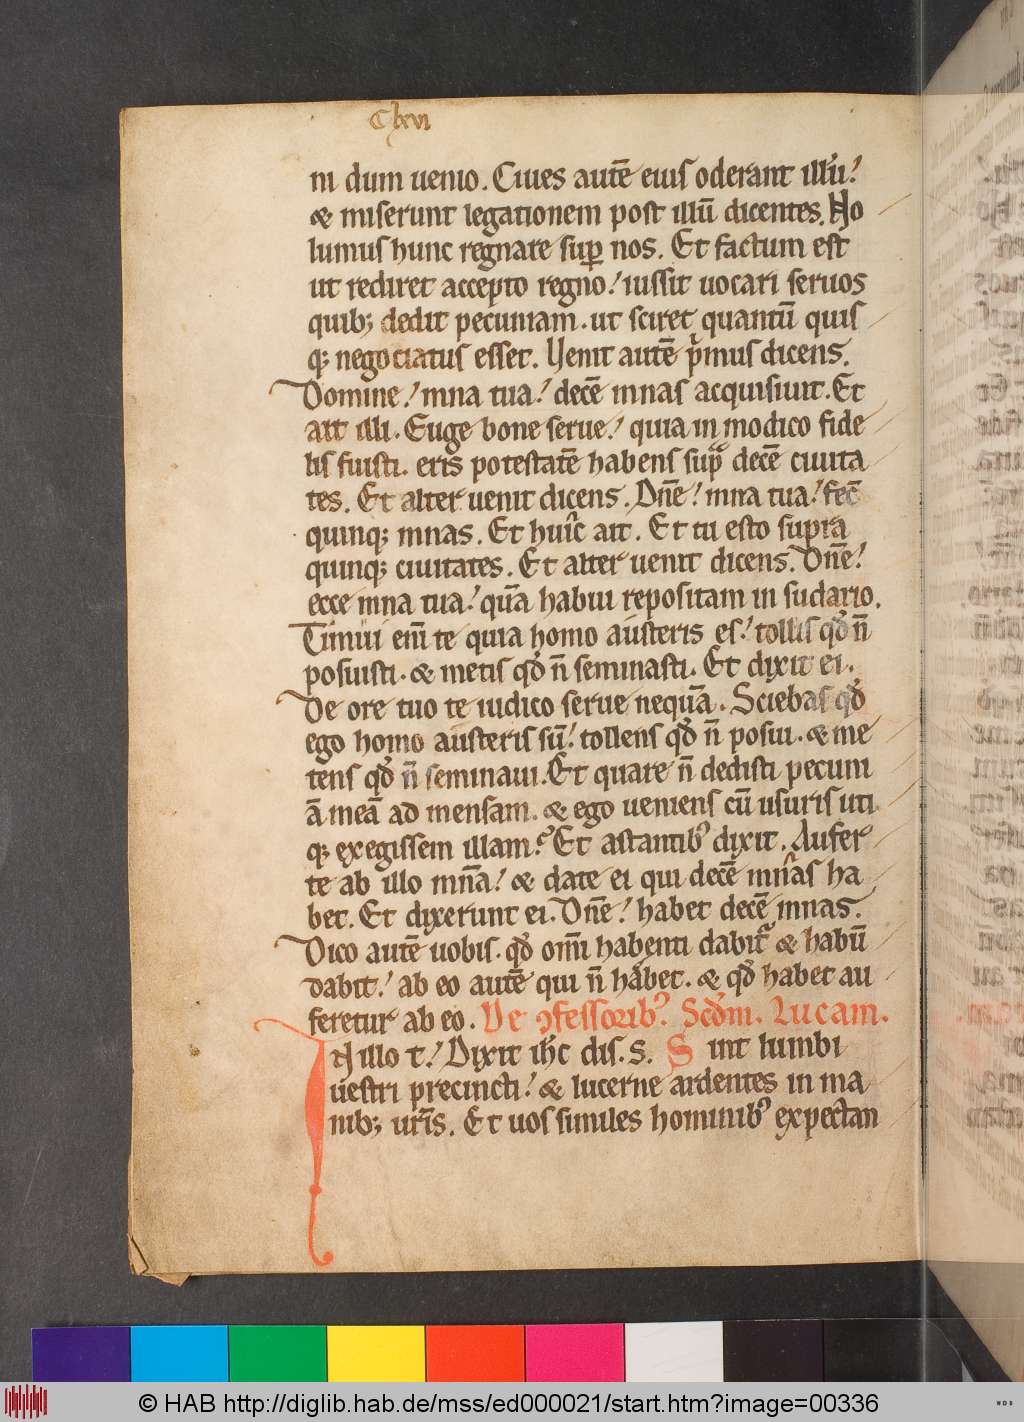 Clxvi
ni dum uenio. Ciues autē eius oderant illū!
& miserunt legationem post illū dicentes. No
lumus hunc regnare suꝑ nos. Et factum est
ut rediret accepto regno! iussit uocari seruos
quibꝫ dedit pecuniam. ut sciret quantū quis
qꝫ negociatus esset. Uenit autē pͥmus dicens.
Domine! mna tua! decē mnas acquisiuit. Et
ait illi. Euge bone serue! quia in modico fide
lis fuisti. eris potestatē habens supͣ decē ciuita
tes. Et alter uenit dicens. Dn̄e! mna tua! fec̄
quinqꝫ mnas. Et huic ait. Et tu esto supra
quinqꝫ ciuitates. Et alter uenit dicens. Dn̄e!
ecce mna tua! quā habui repositam in sudario.
Timui enī te quia homo austeris es! tollis qd̓ n̄
posuisti. & metis qd̓ n̄ seminasti. Et dixit ei.
De ore tuo te iudico serue nequā. Sciebas qd̓
ego homo austeris sū! tollens qd̓ n̄ posui. & me
tens qd̓ n̄ seminaui. Et quare n̄ dedisti pecuni
ā meā ad mensam. & ego ueniens cū usuris uti
qꝫ exegissem illam? Et astantibꝰ dixit. Aufer
te ab illo mnā! & date ei qui decē mnas ha
bet. Et dixerunt ei. Dn̄e! habet decē mnas.
Dico autē uobis. qd̓ omī habenti dabitᷣ & habū
dabit! ab eo autē qui n̄ habet. & qd̓ habet au
feretur ab eo. De ꝯfessoribꝰ. Scd̓m. Lucam.
IN illo t! Dixit ih̄c dis. s. Sint lumbi
uestri precincti! & lucerne ardentes in ma
nibꝫ ur̄is. Et uos similes hominibꝰ expectan
© HAB http://diglib.hab.de/mss/ed000021/start.htm?image=00336